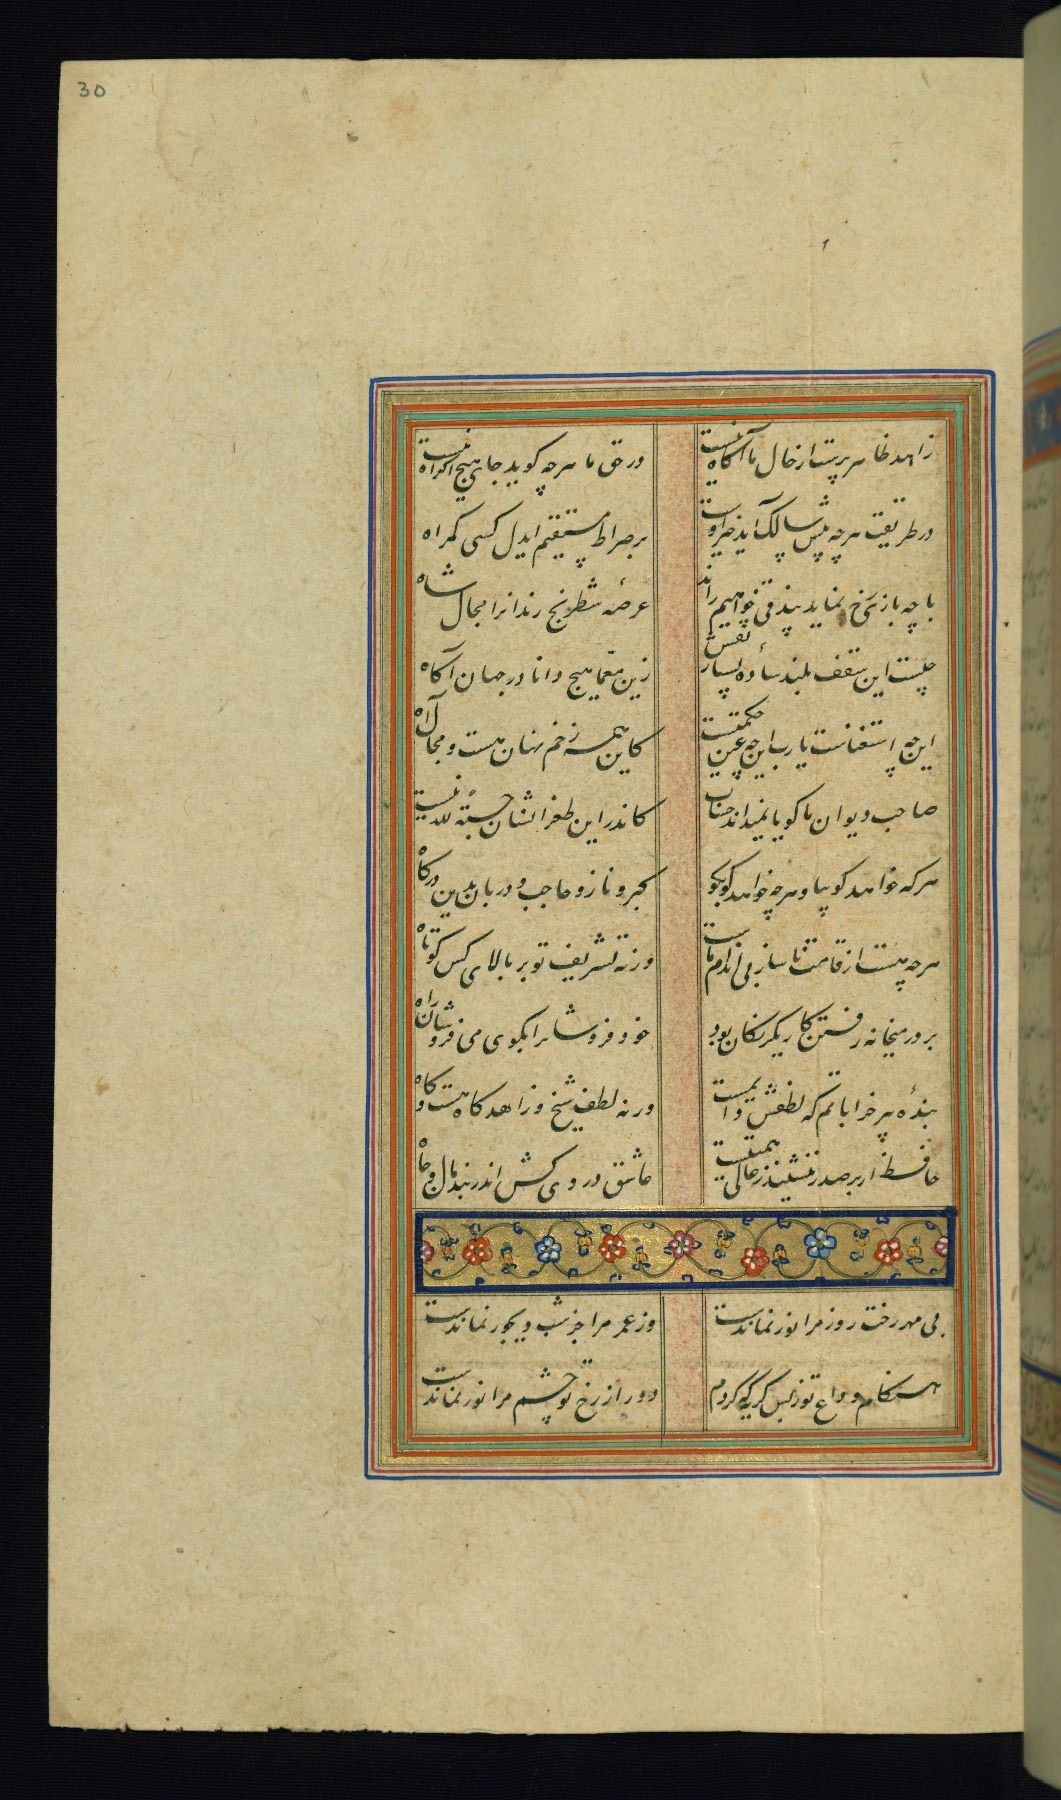 30
زاهد ظاهر پرست از حال ما آکاه نیست
در حق ما هرچه کوید جای هیچ اکراه نیست
در طریقت هرچه پیش سالک آید خیر اوست
بر صراط مستقیم ایدل کسی کمراه
تا چه بازی رخ نماید بیذقی خواهیم راند
عرصهٔ شطرنج رندانرا مجال شاه
چیست این سقف بلند سادهٔ بسیار نقش
زین معما هیچ دانا در جهان آکاه
این چه استغناست یارب این چه عین حکمتست
کاین همه زخم نهان هست و مجال آه
صاحب دیوان ما کویا نمیداند حساب
کاندر این طغرا نشان حسبة لله نیست
هرکه خواهد کو بیا و هرچه خواهد کو بکو
کبر و ناز و حاجب و دربان بدین درکاه
هرچه هست از قامت ناساز بی اندام ماست
ورنه تشریف تو بر بالای کس کوتاه
بر در میخانه رفتن کار یکرنکان بود
خود فروشانرا بکوی می فروشان راه
بندهٔ پیر خراباتم که لطفش دایمست
ورنه لطف شیخ و زاهد کاه هست و کاه
حافظ ار بر صدر ننشیند ز عالی همتیست
عاشق دردی کش اندر بند مال و جاه
بی مهر رخت روز مرا نور نماندست
وز عمر مرا جز شب دیجور نماندست
هنکام وداع تو ز بس کریه کردم
دور از رخ تو چشم مرا نور نماندست